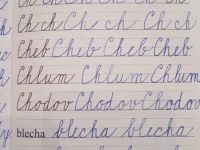 Ch ch Ch ch Ch ch
Cheb Cheb Cheb Cheb
Chlum Chlum Chlum
Chodov Chodov Chodov
blecha blecha blecha